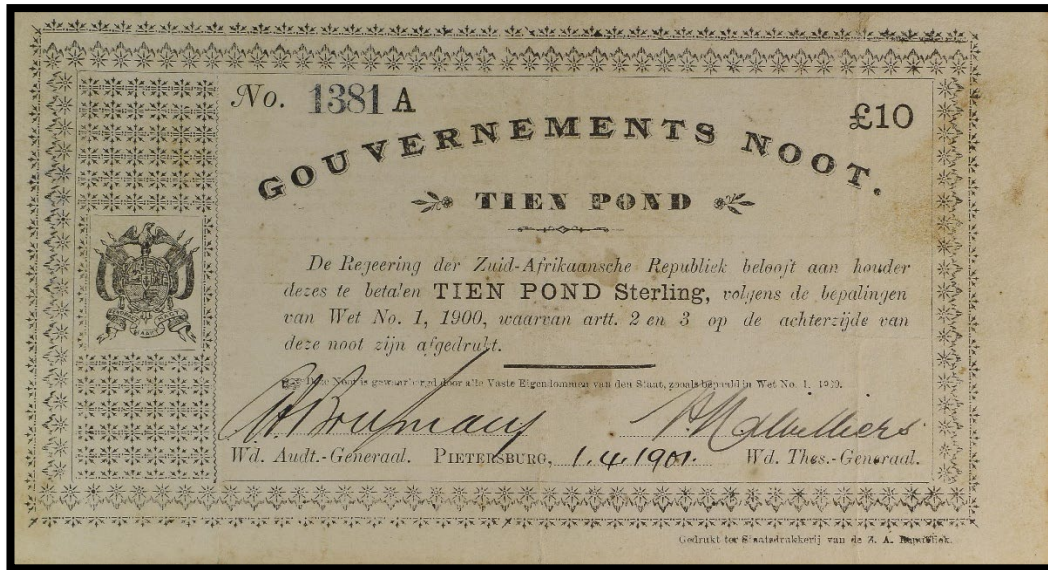 No. 1381 A
£10
GOUVERNEMENTS NOOT.
TIEN POND
De Regeering der Zuid-Afrikaansche Republiek belooft aan houder
dezes te betalen TIEN POND Sterling, volgens de bepalingen
van Wet No. 1, 1900, waarvan artt. 2 en 3 op de achterzijde van
deze noot zijn afgedrukt.
Deze Noot is gewaarborgd door alle Vaste Eigendommen van den Staat, zooals bepaald in Wet No. 1. 1900.
Wd. Audt.-Generaal. PIETERSBURG, 1.4.1901. Wd. Thes.-Generaal.
Gedrukt ter Staatsdrukkerij van de Z. A. Republiek.